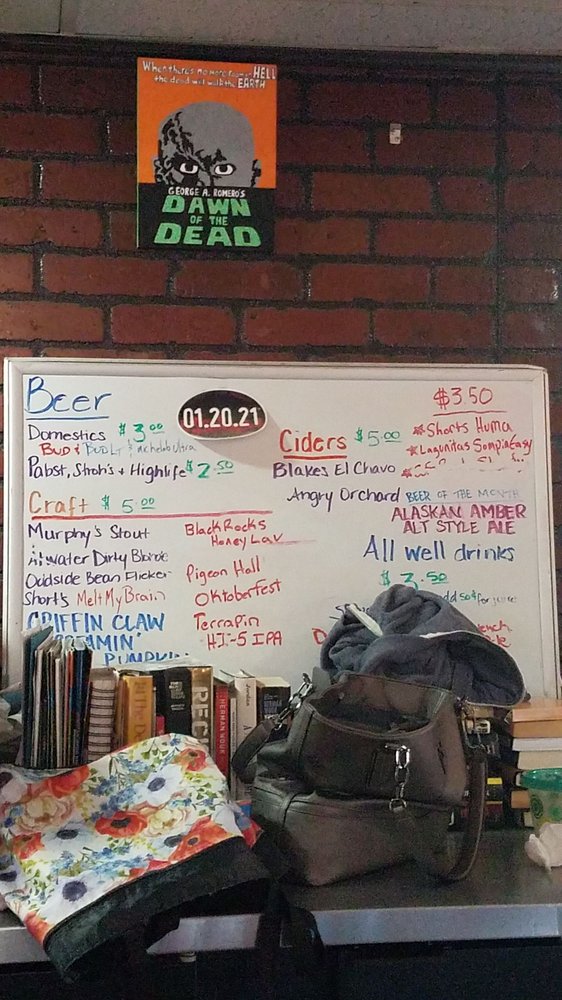 When there's no more room in HELL
the dead will walk the EARTH
GEORGE A. ROMERO'S
DAWN
OF THE
DEAD
Beer
Domestics $3.00
BUD & BUD LT & Michelob Ultra
Pabst, Stroh's + Highlife $2.50
Craft $5.00
Murphy's Stout
Atwater Dirty Blonde
Oddside Bean Flicker
Short's Melt My Brain
GRIFFIN CLAW
PUMPKIN
BlackRocks
Honey Lav
Pigeon Hall
Oktoberfest
Terrapin
HI-5 IPA
01.20.21
Ciders $5.00
Blakes El Chavo
Angry Orchard
$3.50
Shorts Huma
Lagunitas Sumpin Easy
BEER OF THE MONTH
ALASKAN AMBER
ALT STYLE ALE
All well drinks
$3.50
add 50¢ for juice
HERMAN WOUK